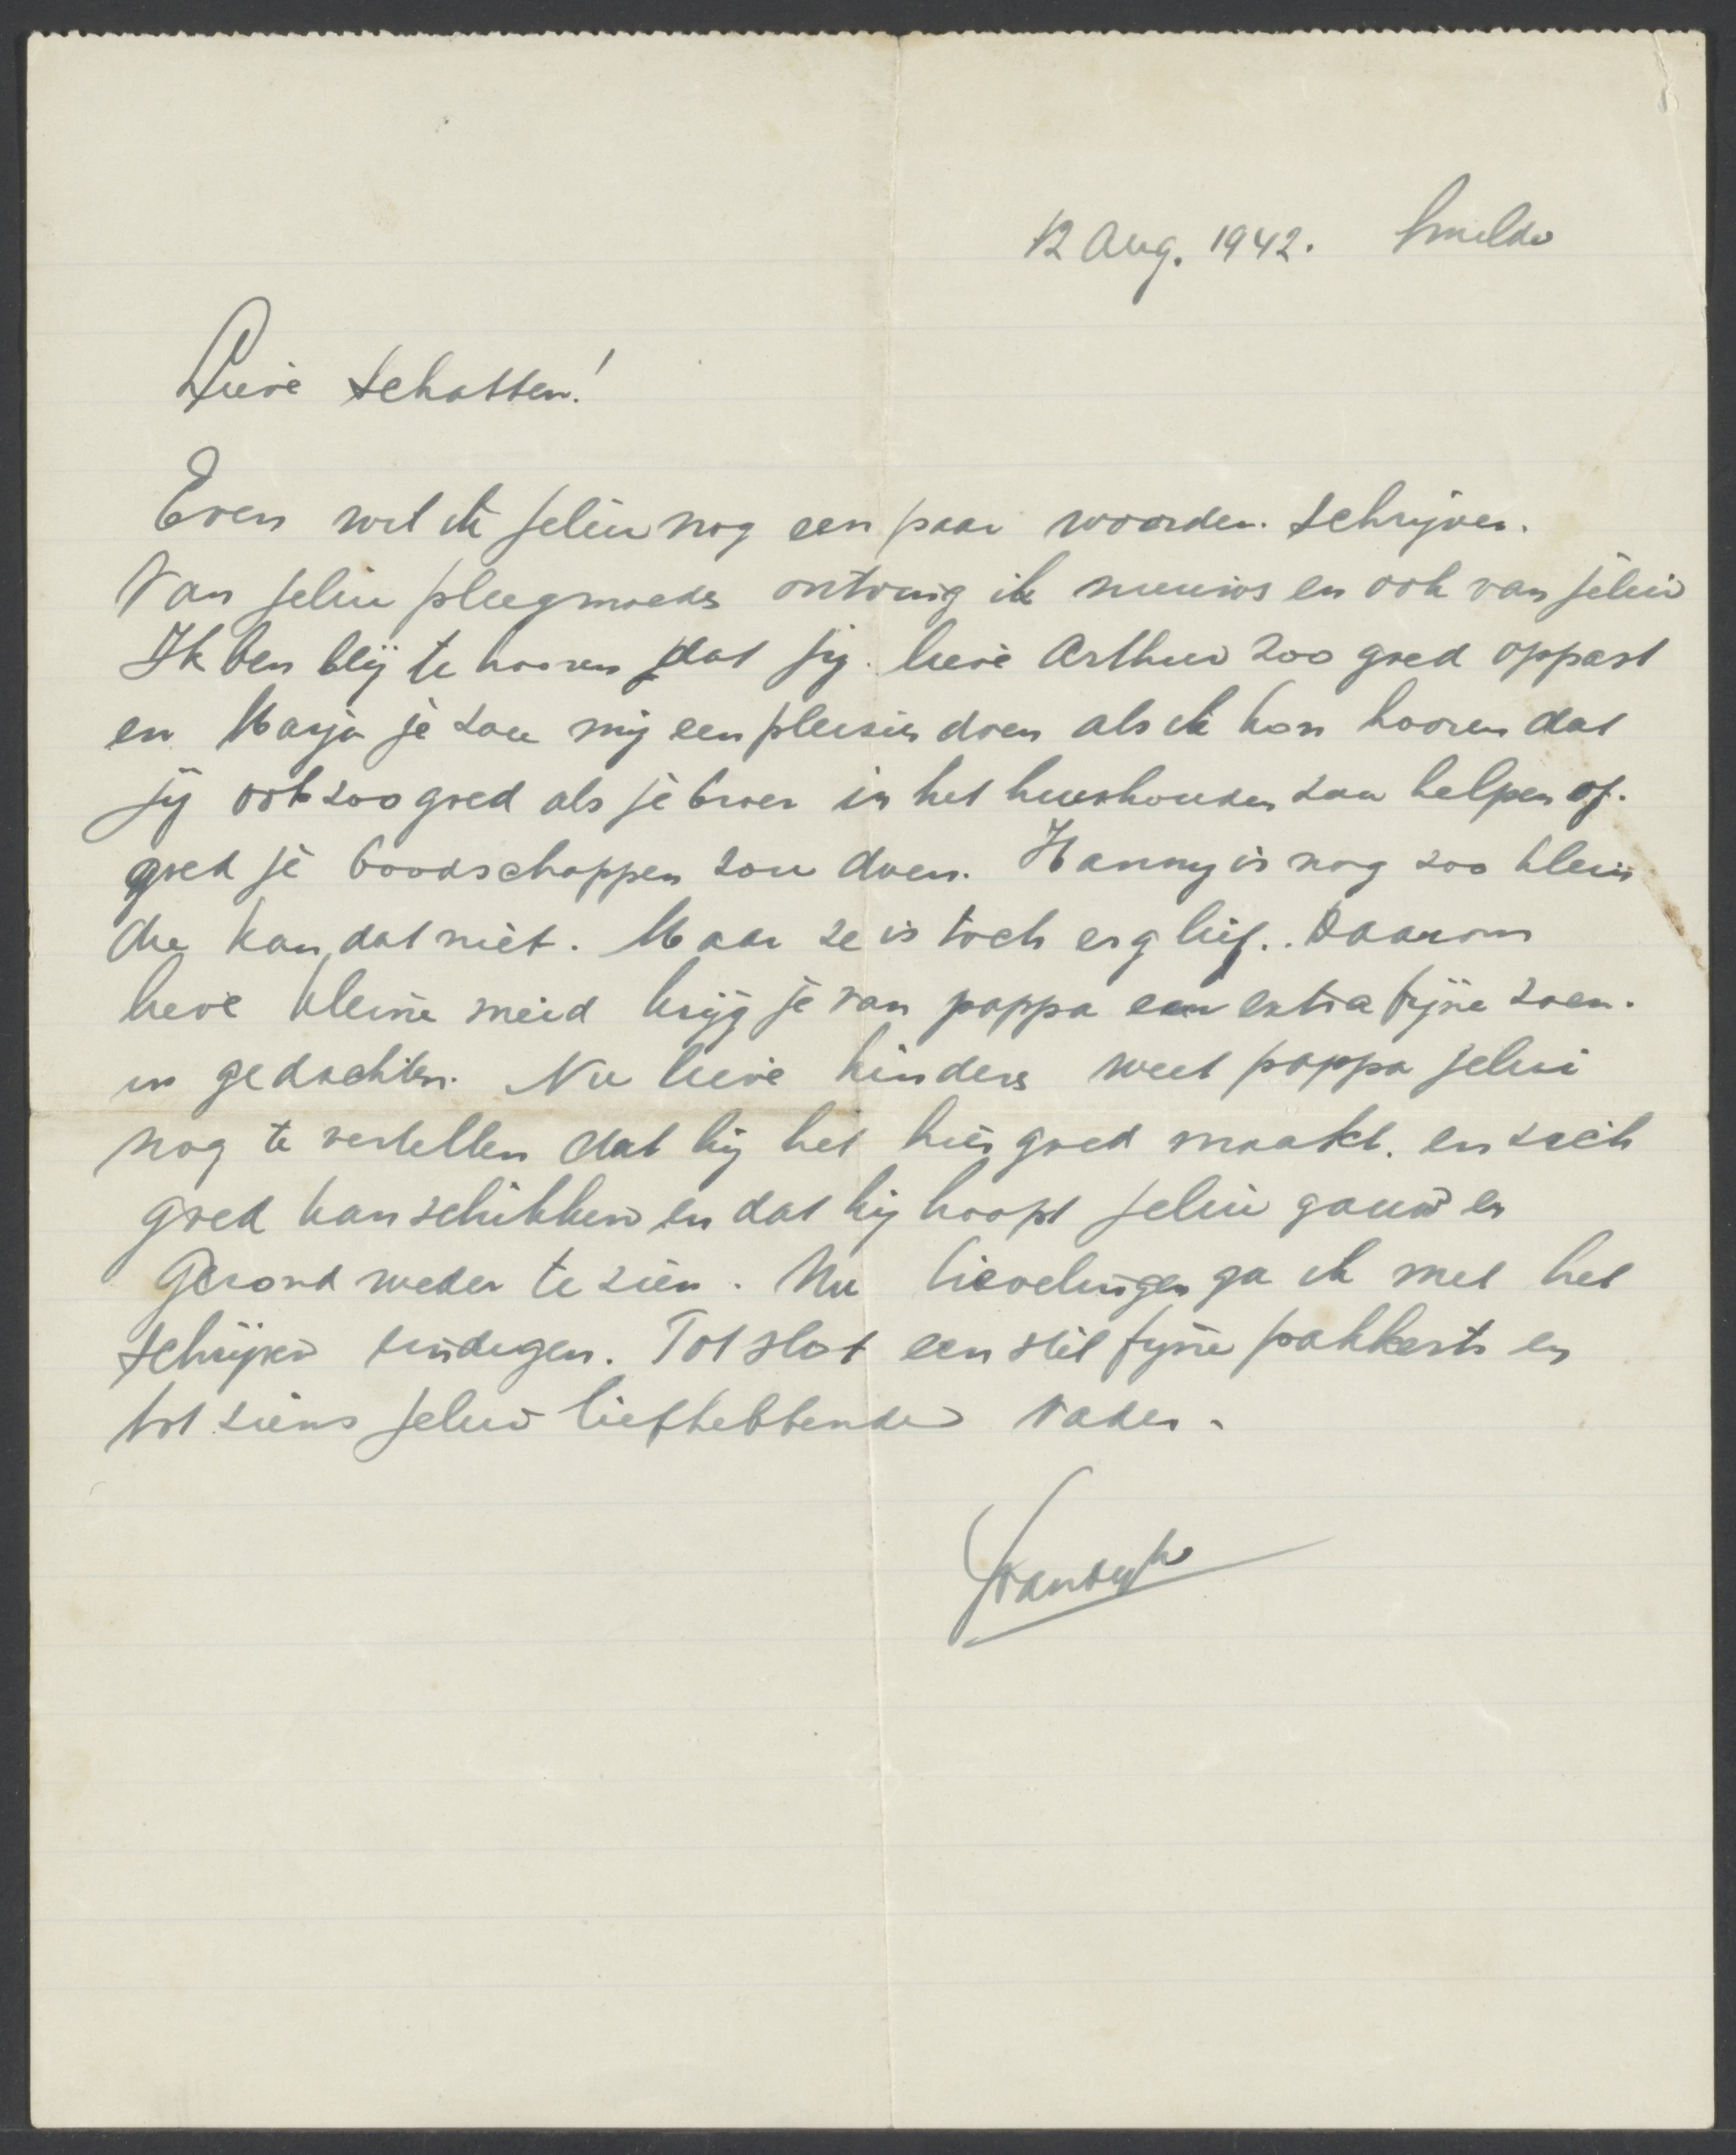 12 Aug. 1942. Smilde
Lieve schatten!
Even wil ik jeliu nog een paar woorden schrijven.
Van jeliu pleegmoeder ontving ik nieuws en ook van jeliu
Ik ben blij te hooren dat jij lieve Arthur zoo goed oppast
en Marja je zou mij een pleisier doen als ik kon hooren dat
jij ook zoo goed als je broer in het huishouden zou helpen of
goed je boodschappen zou doen. Hanny is nog zoo klein
die kan dat niet. Maar ze is toch erg lief.. Daarom
lieve kleine meid krijg je van pappa een extra fijne zoen.
in gedachten. Nu lieve kinders weet pappa jeliu
nog te vertellen dat hij het hier goed maakt. en zich
goed kan schikken en dat hij hoopt jeliu gauw en
gezond weder te zien. Nu lievelingen ga ik met het
schrijven eindigen. Tot slot een stel fijne pakkerts en
tot ziens jeliu liefhebbende vader.